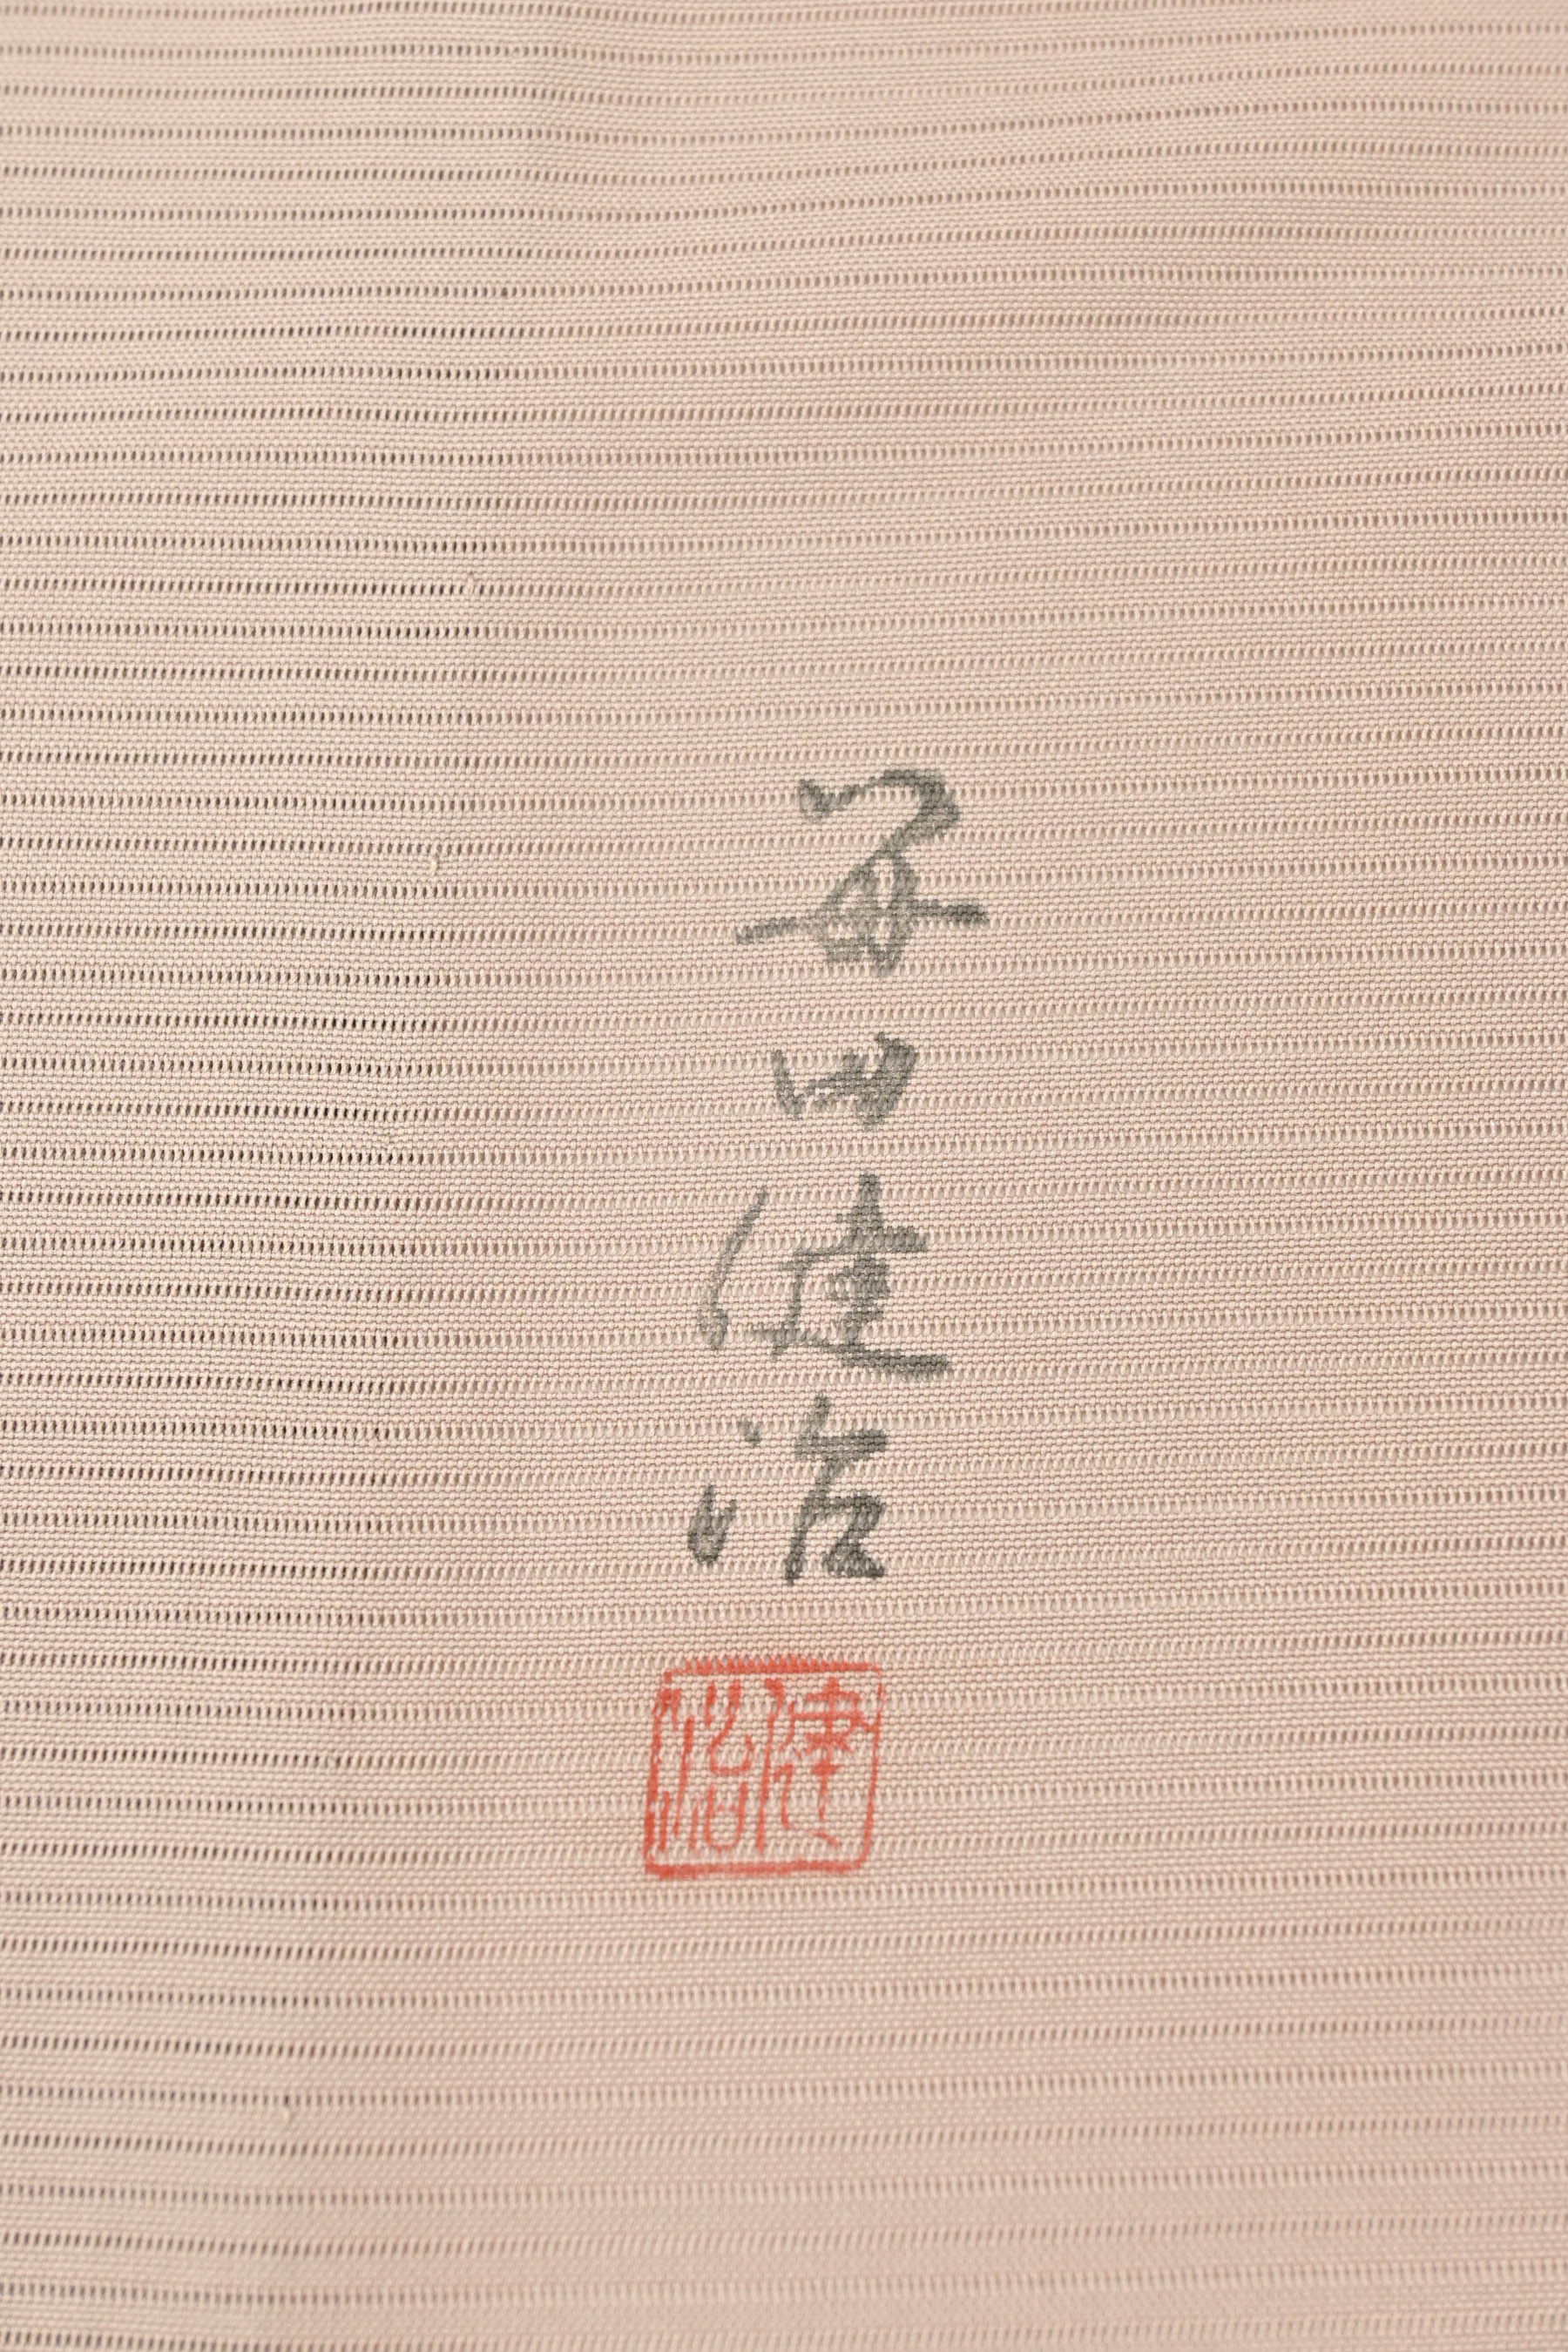 毎田健治
健治